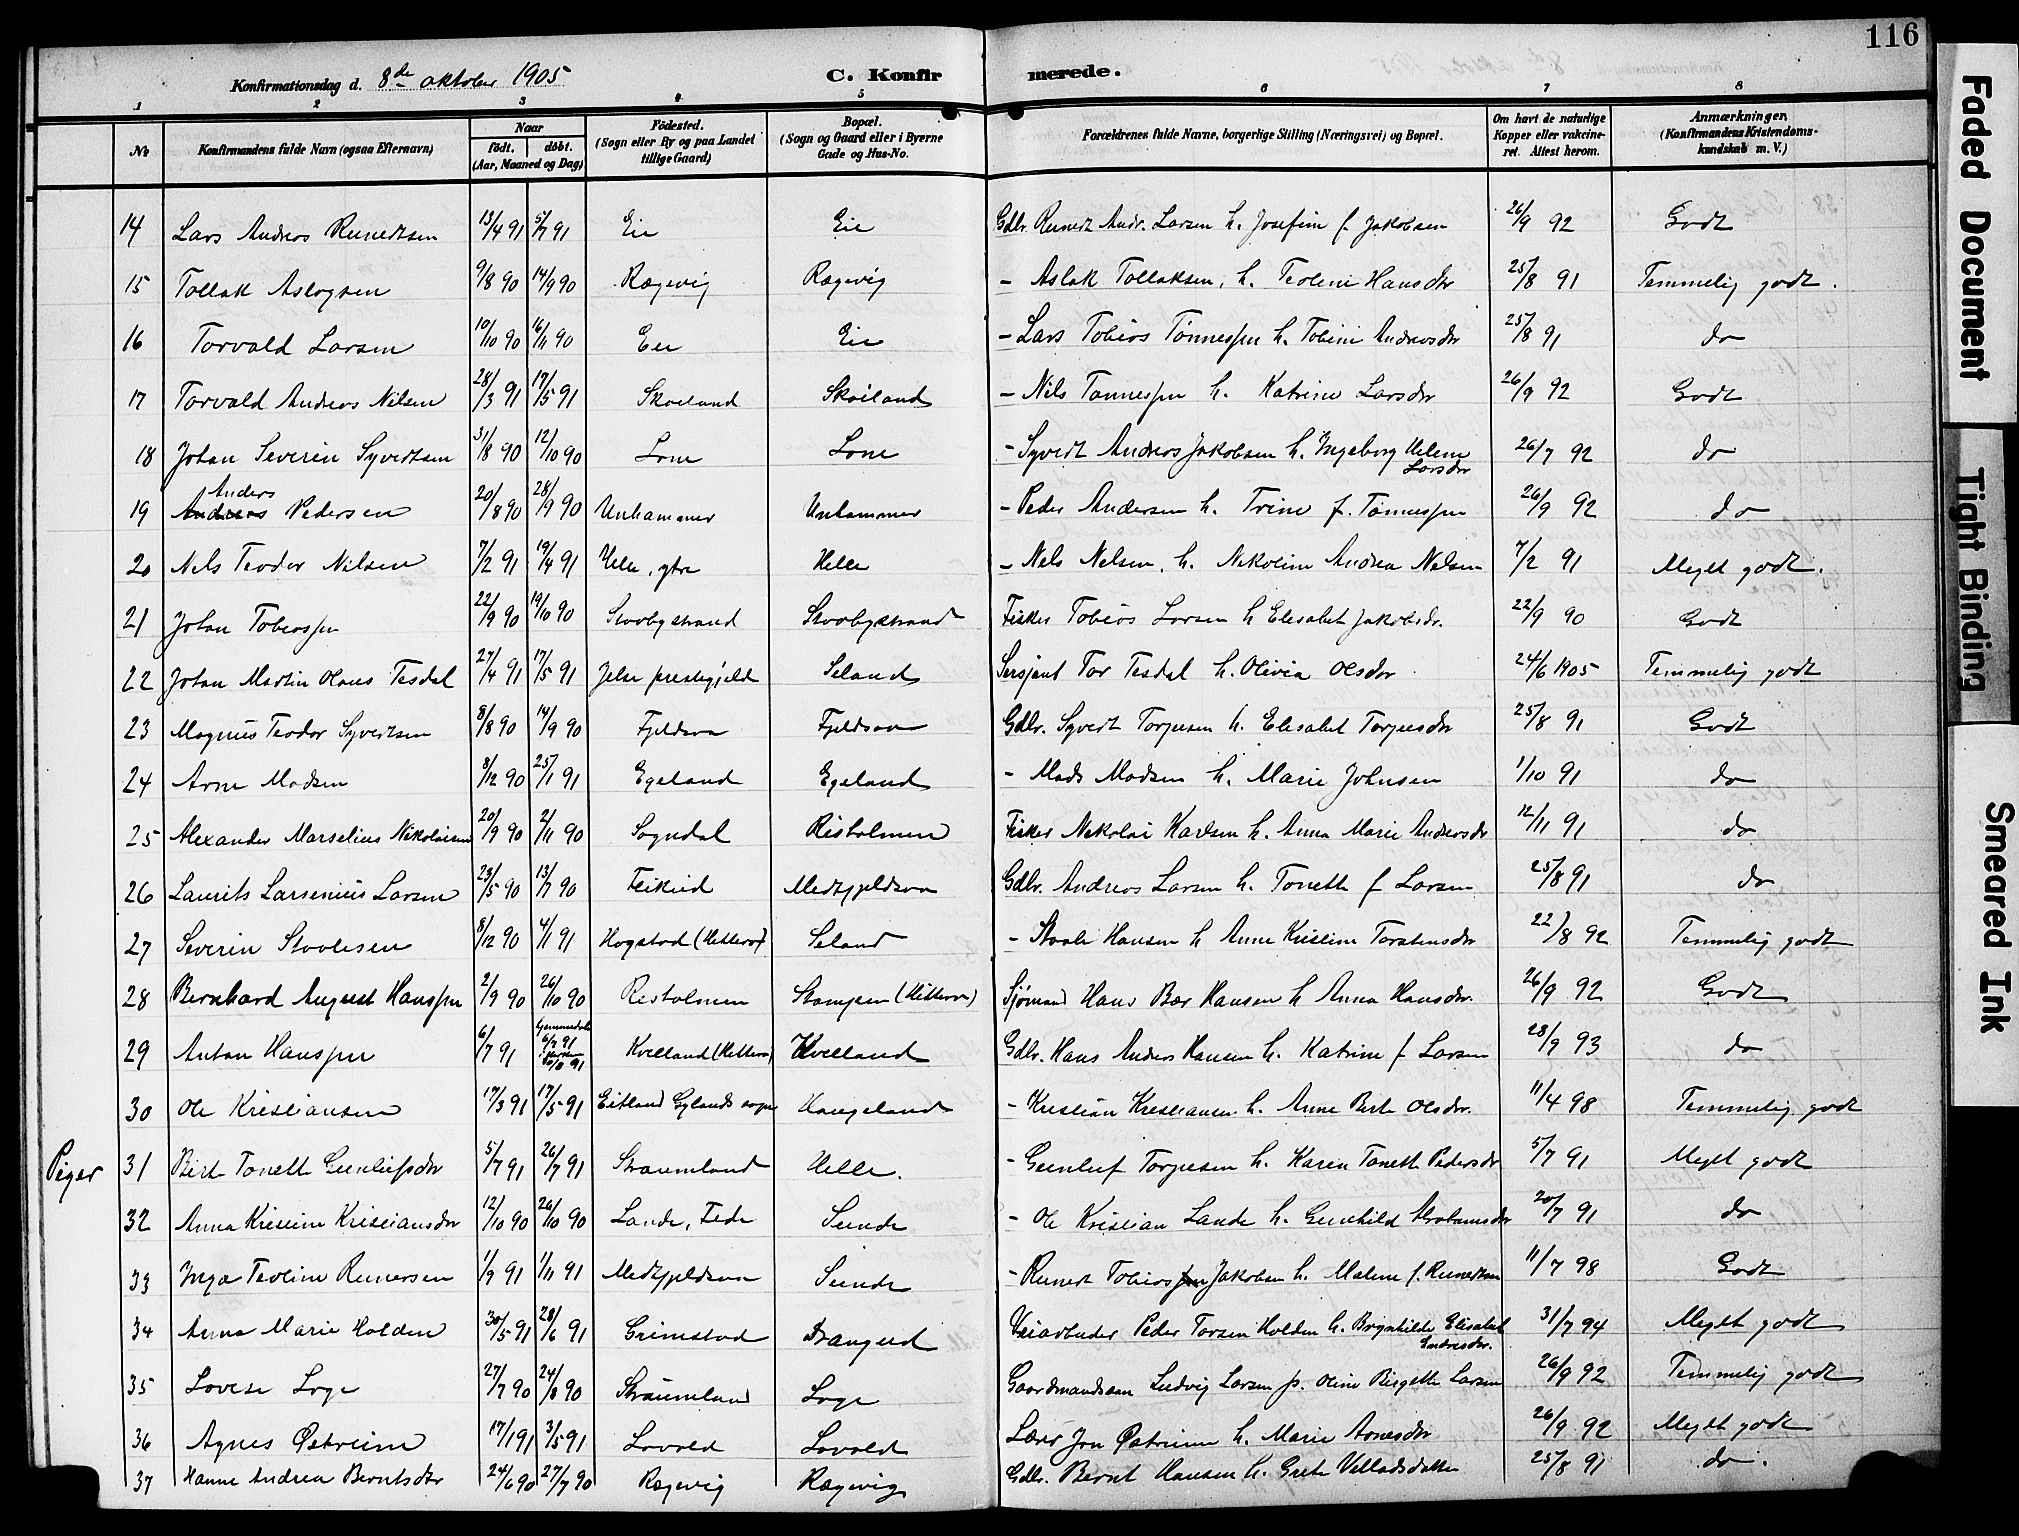 116
Konfirmationsdag d. 8de oktober 1905 C. Konfirmerede.
1 2 3 4 5 6 7 8
No Konfirmandens fulde Navn (ogsaa Efternavn) Naar födt. döbt. (Aar, Maaned og Dag) Födested. (Sogn eller By og paa Landet tillige Gaard) Bopæl. (Sogn og Gaard eller i Byerne Gade og Hus-No. Forældrenes fulde Navne, borgerlige Stilling (Næringsvei) og Bopæl. Om havt de naturlige Kopper eller vakcineret. Attest herom. Anmærkninger. (Konfirmandens Kristendomskundskab m. V.)
14 Lars Andreas Reinertsen 13/4 91 5/7 91 Eie Eie Gdbr. Reinert Andr. Larsen h. Josefine f. Jakobsen 26/9 92 Godt
15 Tollak Aslagsen 9/8 90 14/9 90 Rægevig Rægevig - Aslak Tollaksen, h. Teoline Hansdtr 25/8 91 Temmelig godt.
16 Torvald Larsen 10/10 90 16/11 90 Eie Eie - Lars Tobias Tønnessen h. Tobine Andreasdtr 25/8 91 do
17 Torvald Andreas Nilsen 28/3 91 17/5 91 Skoiland Skoiland - Nils Tønnessen h. Katrine Larsdtr 26/9 92 Godt
18 Johan Severin Syvertsen 31/8 90 12/10 90 Lone Lone - Syvert Andreas Jakobsen h. Ingeborg Helene Larsdtr 26/7 92 do
19 Andreas Anders Pedersen 20/8 90 28/9 90 Unhammer Unhammer - Peder Andersen h. Trine f. Tønnessen 26/9 92 do
20 Nels Teodor Nilsen 7/2 91 19/4 91 Helle, ytre Helle - Nels Nelsen, h. Nekoline Andrea Nelsen 7/2 91 Meget godt.
21 Johan Tobiassen 22/9 90 19/10 90 Stoobystrand Stoobystrand Fisker Tobias Larsen h Elisabet Jakobsdr. 22/9 90 Godt
22 Johan Martin Olaus Tesdal 27/4 91 17/5 91 Jelse prestegjeld Seland Sersjant Tor Tesdal h. Olivia Olsdtr 24/6 1905 Temmelig godt
23 Magnus Teodor Syvertsen 8/8 90 14/9 90 Fjeldsaa Fjeldsaa Gdbr. Syvert Torjusen h. Elisabet Torjusdtr 25/8 91 Godt
24 Arne Madsen 8/12 90 25/1 91 Egeland Egeland - Mads Madsen h. Marie Johnsen 1/10 91 do
25 Alexander Marselius Nikolaisen 20/9 90 2/11 90 Sogndal Risholmen Fisker Nekolai Karlsen h. Anna Marie Andreasdr 12/11 91 do
26 Laurits Larsenius Larsen 23/5 90 13/7 90 Feikvid Medfjeldsaa Gdbr. Andreas Larsen h. Tonette f Larsen 25/8 91 do
27 Severin Stoolesen 8/12 90 4/1 91 Hogstad (Hitterø) Seland - Staale Hansen h Anne Kristine Torstensdtr 22/8 92 Temmelig godt
28 Bernhard August Hanssen 2/9 90 26/10 90 Risholmen Stampen (Hitterø) Sjømand Hans Bær Hansen h Anna Hansdr. 26/9 92 Godt
29 Anton Hanssen 6/7 91 Hjemmedøbt 6/7 91 Kvelland (Hitterø) Kvelland Gdbr. Hans Anders Hansen h. Katrine f Larsen 28/9 93 do
30 Ole Kristiansen 17/3 91 17/5 91 Eitland Gylands sogn Haugeland - Kristian Kristiansen h. Anne Berte Olsdr. 11/4 98 Temmelig godt
Piger 31 Berte Tonette Geenleifsdtr 5/7 91 26/7 91 Straumland Helle. - Geenleif Torjusen h. Karen Tonette Pedersdr 5/7 91 Meget godt
32 Anna Kristine Kristiansdtr 12/10 90 26/10 90 Lande, Fede Seinde - Ole Kristian Lande h. Gunhild Abrahamsdtr 20/7 91 do
33 Inga Teoline Reinersen 1/9 91 1/11 91 Medfjeldsaa Seinde - Reinert Tobiassen Jakobsen h. Malene f. Reinertsen 11/7 98 Godt
34 Anna Marie Holden 30/5 91 28/6 91 Grimstad Veiarbeider Peder Torsen Holden h. Brynhilde Elisabet Endresdtr. 31/7 94 Meget godt
35 Lovise Loge 27/7 90 24/8 90 Straumland Loge Gaardmandssøn Ludvig Larsen p. Oline Birgette Larsen 26/9 92 Temmelig godt
36 Agnes Østreim 17/1 91 3/5 91 Lovold Lovold Lærer Jon Østreim h. Marie Arnesdtr 26/9 92 Meget godt
37 Hanne Andrea Berntsdtr 24/6 90 27/7 90 Rægevig Rægevig Gdbr. Bernt Hansen h. Grete Villadsdatter 25/8 91 do.
Faded Document
Tight Binding
Smeared Ink